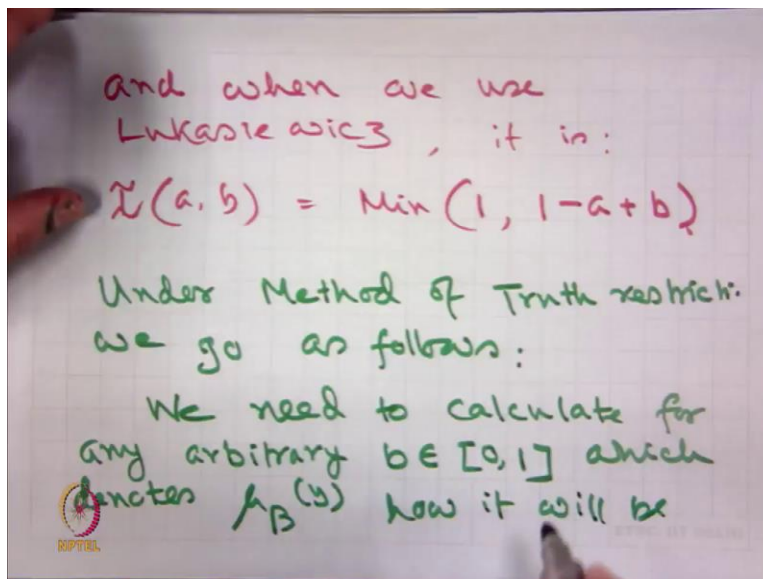 and when we use
Lukasiewicz, it is:
I(a, b) = Min (1, 1-a+b)
Under Method of Truth restrict.
we go as follows:
We need to calculate for
any arbitrary b ∈ [0,1] which
denotes μ_B(y) how it will be
NPTEL